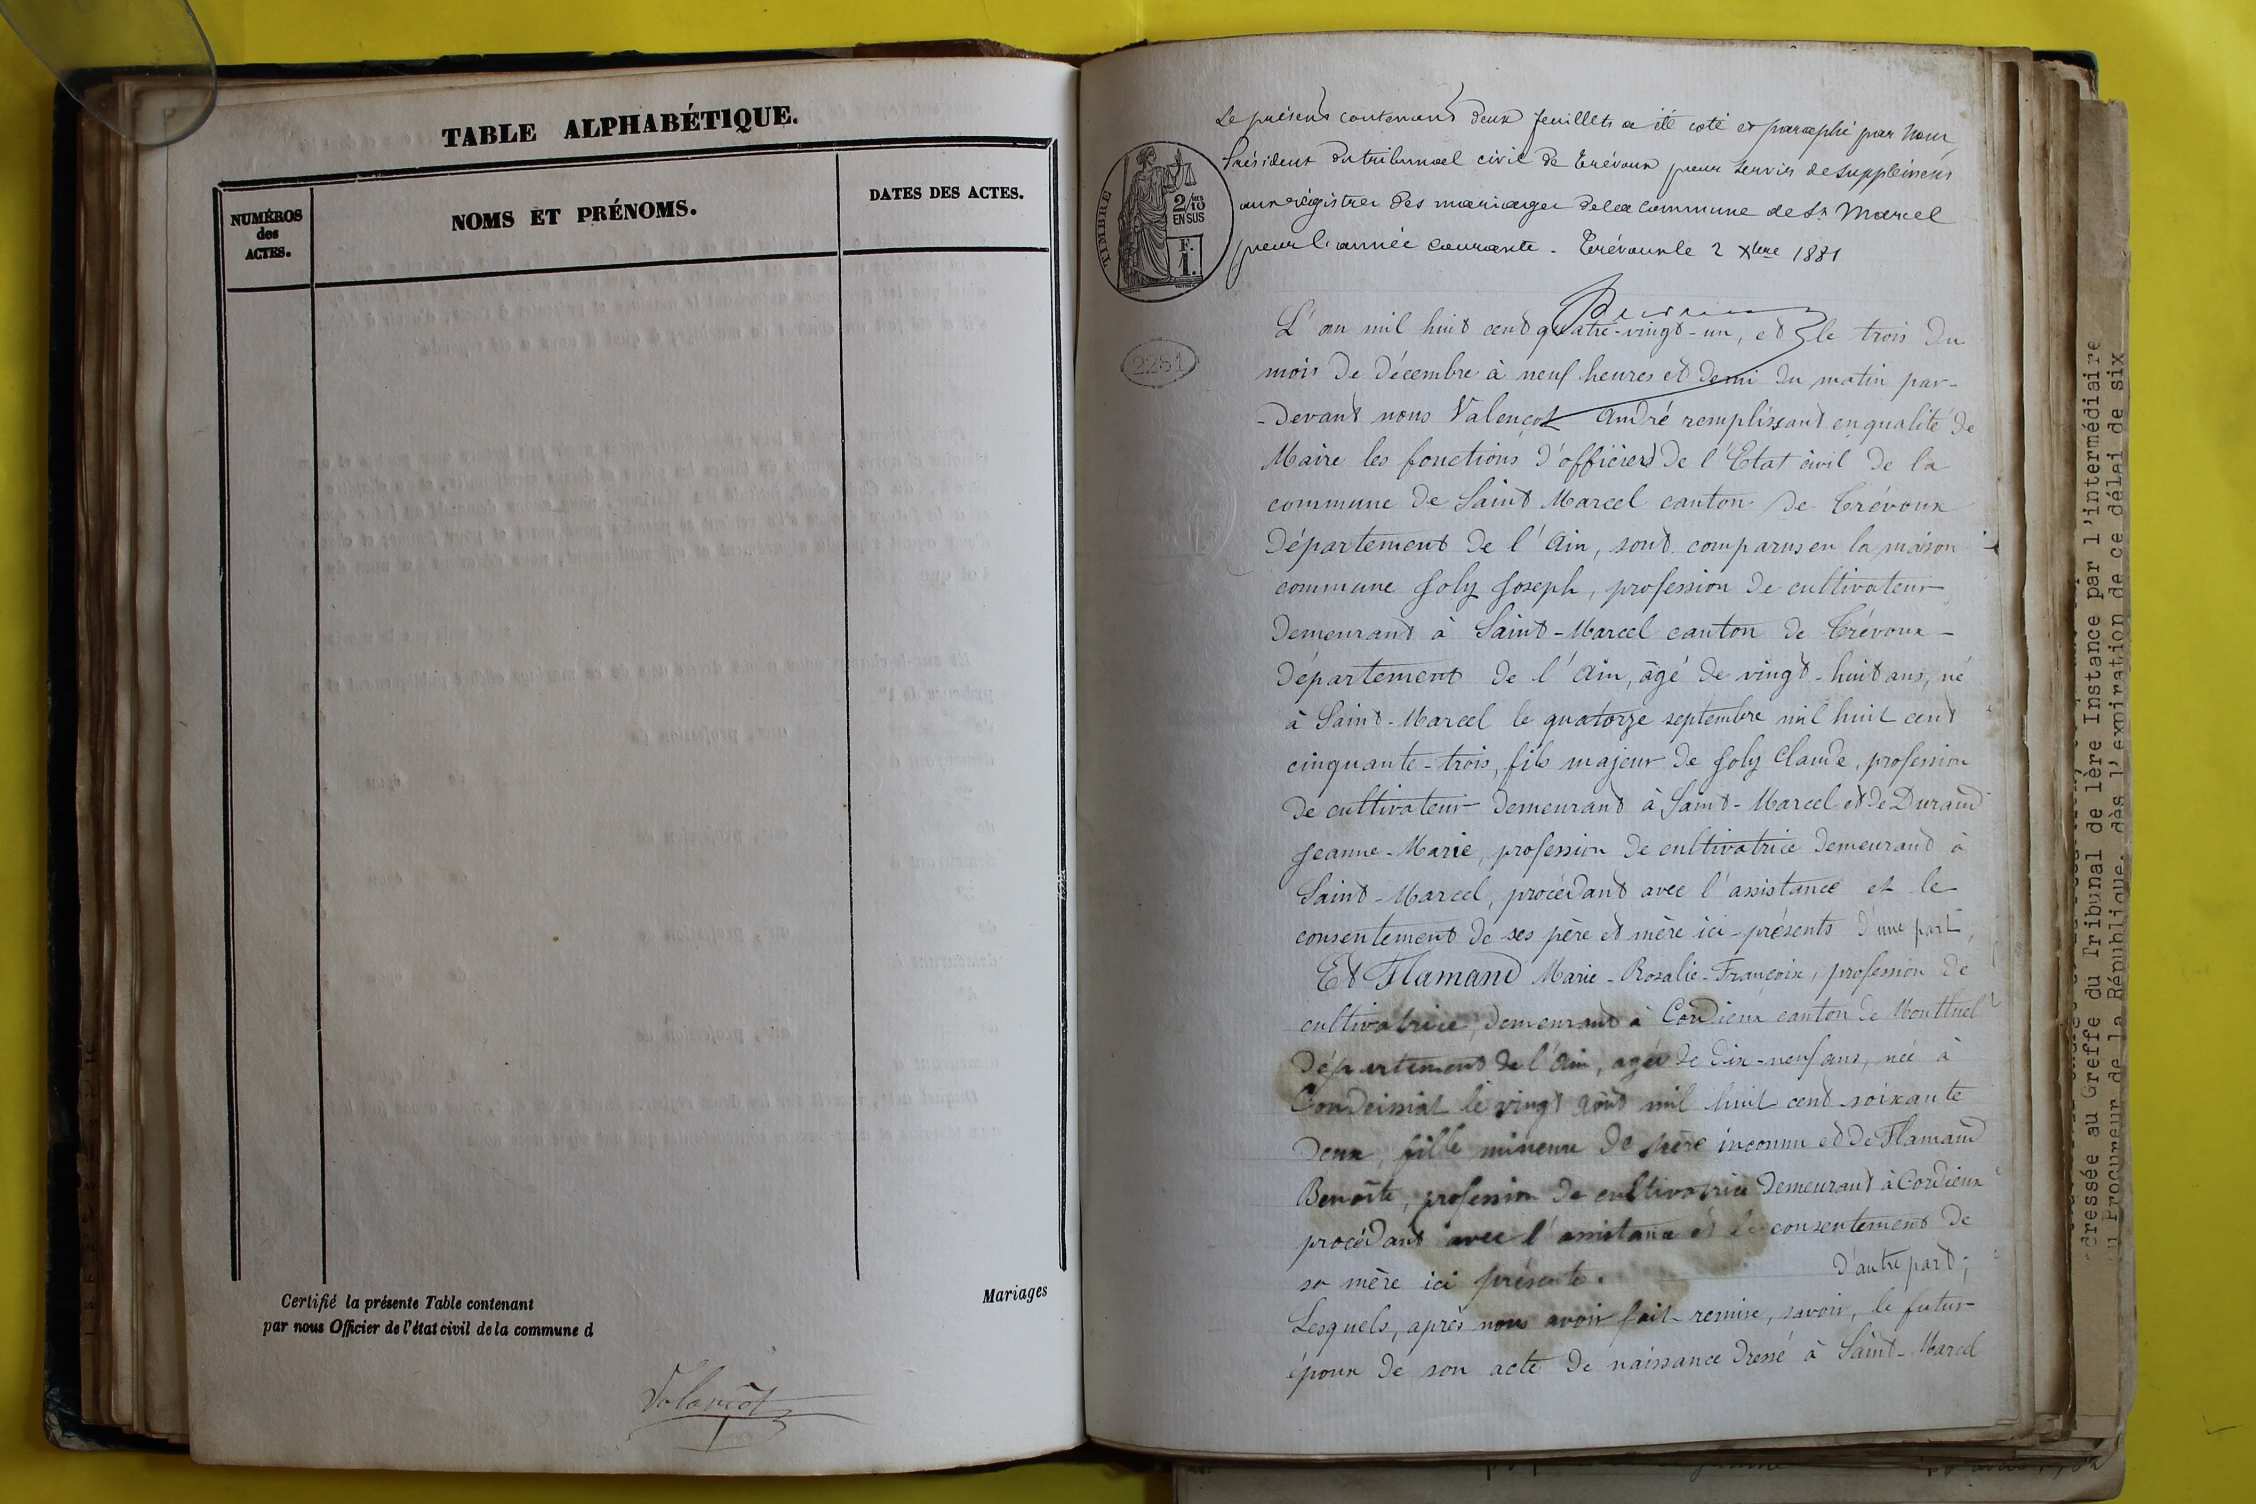 TABLE ALPHABÉTIQUE.
NUMÉROS
des
ACTES.
NOMS ET PRÉNOMS.
DATES DES ACTES.
Certifié la présente Table contenant
par nous Officier de l'état civil de la commune d
Mariages
Valençot
Le présent contenant deux feuillets a été coté et paraphé par Nous
Président du tribunal civil de Trévoux pour servir de supplément
aux régistres des mariages de la commune de St Marcel
pour l'année courante - Trévoux le 2 Xbre 1881
TIMBRE
2/10
EN SUS
F.
1.
2281
L'an mil huit cent quatre-vingt-un, et le trois du
mois de décembre à neuf heures et demi du matin par-
-devant nous Valençot André remplissant en qualité de
Maire les fonctions d'officier de l'Etat civil de la
commune de Saint Marcel canton de Trévoux
département de l'Ain, sont comparus en la maison
commune Joly Joseph, profession de cultivateur
demeurant à Saint-Marcel canton de Trévoux -
département de l'Ain, âgé de vingt-huit ans, né
à Saint-Marcel le quatorze septembre mil huit cent
cinquante-trois, fils majeur de Joly Claude, profession
de cultivateur demeurant à Saint-Marcel et de Durand
Jeanne-Marie, profession de cultivatrice demeurant à
Saint-Marcel, procédant avec l'assistance et le
consentement de ses père et mère ici-présents d'une part,
Et Flamand Marie-Rosalie-Françoise, profession de
cultivatrice, demeurant à Cordieux canton de Montluel
département de l'Ain, agée de dix-neuf ans, née à
Condeissiat le vingt août mil huit cent soixante
deux, fille mineure de père inconnu et de Flamand
Benoîte, profession de cultivatrice demeurant à Cordieux
procédant avec l'assistance et le consentement de
sa mère ici présente. d'autre part;
Lesquels, après nous avoir fait remise, savoir, le futur
époux de son acte de naissance dressé à Saint-Marcel
dressée au Greffe du Tribunal de 1ère Instance par l'intermédiaire
u Procureur de la République, dès l'expiration de ce délai de six